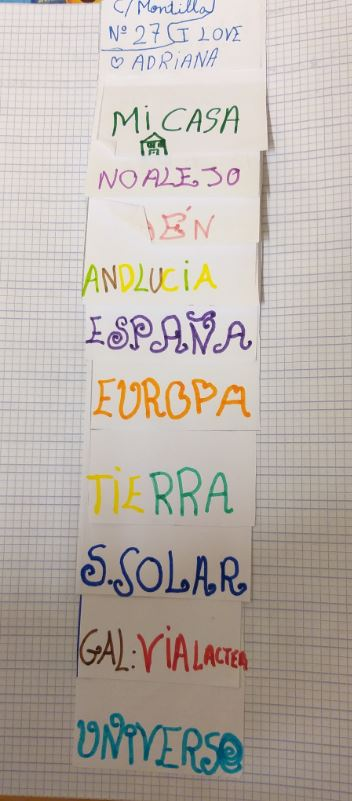 C/Mondilla
Nº 27 I LOVE
♡ ADRIANA
Mi CASA
NOALEJO
ÉN
ANDLUCiA
ESPAÑA
EUROPA
TiERRA
S.SOLAR
GAL: ViA LACTEA
UNiVERSO